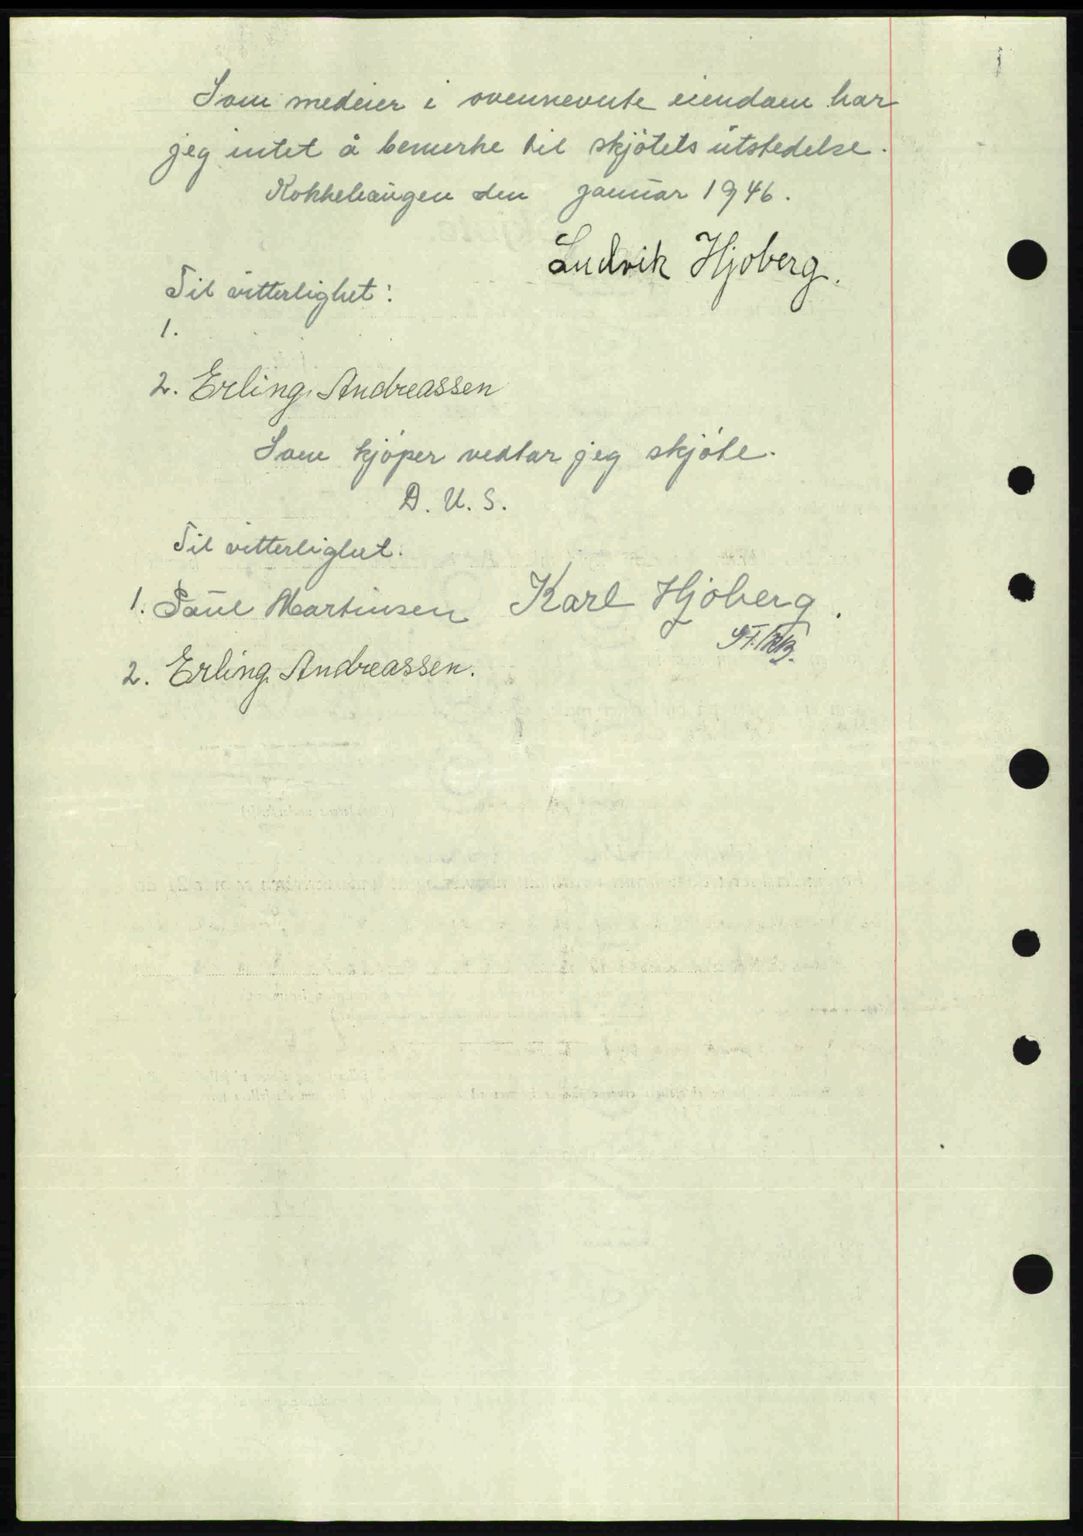 Som medeier i ovennevnte eiendom har
jeg intet å bemerke til skjötets utstedelse.
Kokkehaugen den januar 1946.
Ludvik Hjoberg.
Til vitterlighet:
1.
2. Erling Andreassen
Som kjöper vedtar jeg skjöte.
D. U. S.
Til vitterlighet.
1. Paul Martinsen Karl Hjoberg.
2. Erling Andreassen.